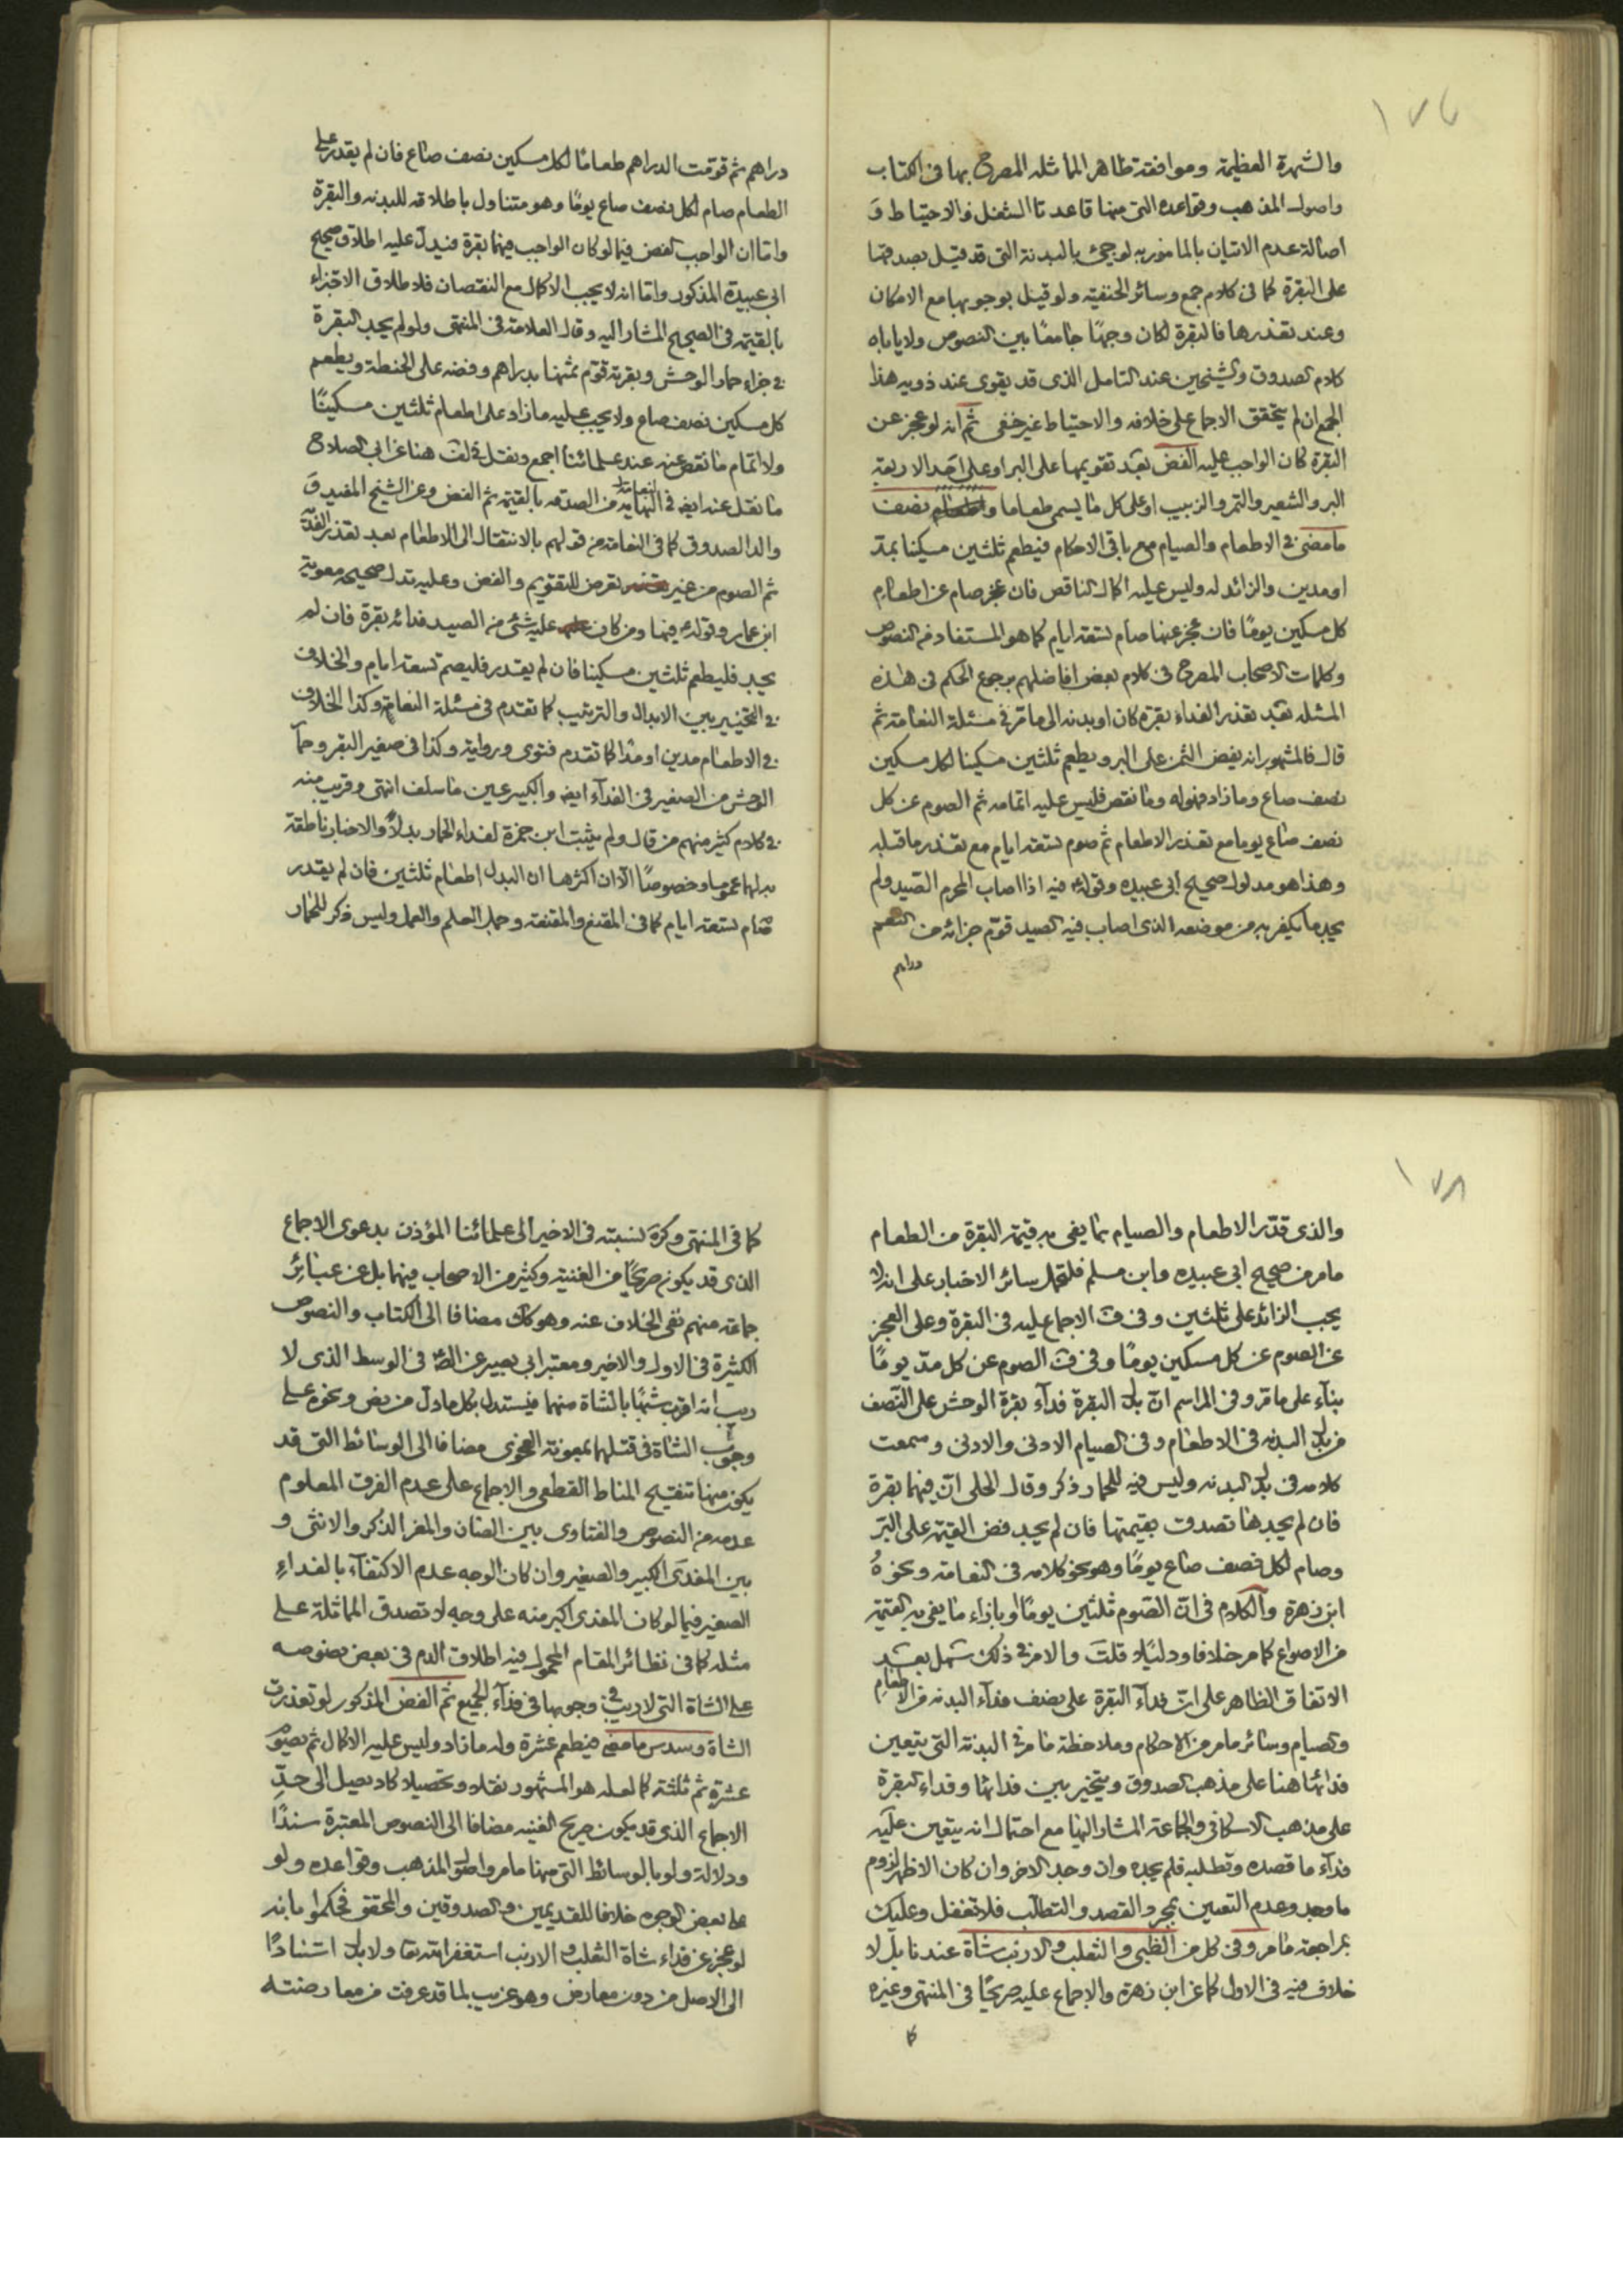 ١٧٧
والشهرة العظيمة وموافقته ظاهر المماثلة المصرح بها فى الكتاب
واصول المذهب وقواعده التى منها قاعدتا الشغل والاحتياط و
اصالة عدم الاتيان بالمامور به لوجئ بالبدنة التى قد قيل بصدقها
على البقرة كما فى كلام جمع وسائر الحنفية ولو قيل بوجوبها مع الامكان
وعند تعذرها فالبقرة لكان وجها جامعا بين النصوص ولا ياباه
كلام الصدوق والشيخين عند التامل الذى قد يقوى عند ذويه هذا
الجمع ان لم يتحقق الاجماع على خلافه والاحتياط غير خفى ثم انه لو عجز عن
البقرة كان الواجب عليه الفض بعد تقويمها على البر او على احد الاربعة
البر والشعير والتمر والزبيب او على كل ما يسمى طعاما ونصف
ما مضى فى الاطعام والصيام مع باقى الاحكام فيطعم ثلثين مسكينا بمد
او مدين والزائد له وليس عليه اكمال الناقص فان عجز صام عن اطعام
كل مسكين يوما فان عجز عنها صام تسعة ايام كما هو المستفاد من النصوص
وكلمات الاصحاب المصرح فى كلام بعض افاضلهم برجوع الحكم فى هذه
المسئلة بعد تعذر الفداء بقرة كان او بدنه الى ما مر فى مسئلة النعامة ثم
قال فالمشهور انه يفض الثمن على البر ويطعم ثلثين مسكينا لكل مسكين
نصف صاع وما زاد فهو له وما نقص فليس عليه اتمامه ثم الصوم عن كل
نصف صاع يوما مع تعذر الاطعام ثم صوم تسعة ايام مع تعذر ما قبله
وهذا هو مدلول صحيح ابى عبيده وقوله فيه اذا اصاب المحرم الصيد ولم
يجد ما يكفر به من موضعه الذى اصاب فيه الصيد قوم جزائه من النعم
دراهم
دراهم ثم قومت الدراهم طعاما لكل مسكين نصف صاع فان لم يقدر على
الطعام صام لكل نصف صاع يوما وهو متناول باطلاقه للبدنه والبقرة
واما ان الواجب الفض فيما لو كان الواجب فيهما بقرة فيدل عليه اطلاق صحيح
ابى عبيدة المذكور واما انه لا يجب الاكمال مع النقصان فلاطلاق الاجتزاء
بالقيمة فى الصحيح المشار اليه وقال العلامة فى المنتهى ولو لم يجد البقرة
فى جزاء حمار الوحش وبقرته قوم ثمنها بدراهم وفضه على الحنطة ويطعم
كل مسكين نصف صاع ولا يجب عليه ما زاد على اطعام ثلثين مسكينا
ولا اتمام ما نقص عنه عند علمائنا اجمع ونقل فى لف هنا عن ابى الصلاح
ما نقل عنه ايضا فى النعامة من الصدقه بالقيمة ثم الفض وعن الشيخ المفيد و
والد الصدوق كما فى النعامة من قولهم بالانتقال الى الاطعام بعد تعذر الفداء
ثم الصوم من غير تعرض للتقويم والفض وعليه تدل صحيحه معوية
ابن عمار وقوله فيها ومن كان عليه شئ من الصيد فدائه بقرة فان لم
يجد فليطعم ثلثين مسكينا فان لم يقدر فليصم تسعة ايام والخلاف
فى التخيير بين الابدال والترتيب كما تقدم فى مسئلة النعامة وكذا الخلاف
فى الاطعام مدين او مدا كما تقدم فتوى ورواية وكذا فى صغير البقر وحمار
الوحش من الصغير فى الفداء ايضا والكبير عين ما سلف انتهى وقريب منه
فى كلام كثير منهم من قال ولم يثبت ابن حمزة لفداء الحمار بدلا والاخبار ناطقة
بدلها عموما وخصوصا الا ان اكثرها ان البدل اطعام ثلثين فان لم يقدر
صام تسعة ايام كما فى المقنع والمقنعة وجمل العلم والعمل وليس ذكر للحمار
١٧٨
والذى قدر الاطعام والصيام بما يفى به قيمة البقرة من الطعام
ما مر من صحيح ابى عبيده وابن مسلم فلتحمل سائر الاخبار على انه لا
يجب الزائد على ثلثين وفى ف الاجماع عليه فى البقرة وعلى العجز
عن الصوم عن كل مسكين يوما وفى ف الصوم عن كل مد يوما
بناء على ما مر وفى المراسم ان بدل البقرة فداء بقرة الوحش على النصف
من بدل البدنه فى الاطعام وفى الصيام الادنى والادنى وسمعت
كلامه فى بدل البدنه وليس فيه للحمار ذكر وقال الحلى ان فيهما بقرة
فان لم يجدها تصدق بقيمتها فان لم يجد فض القيمة على البر
وصام لكل نصف صاع يوما وهو نحو كلامه فى النعامة ونحوه
ابن زهرة والكلام فى ان الصوم ثلثين يوما او بازاء ما يفى به القيمة
من الاصواع كما مر خلافا ودليلا قلت والامر فى ذلك سهل بعد
الاتفاق الظاهر على ان فداء البقرة على نصف فداء البدنه من الاطعام
والصيام وسائر ما مر من الاحكام وملاحظة ما مر فى البدنة التى يتعين
فدائها هنا على مذهب الصدوق ويتخير بين فدائها وفداء البقرة
على مذهب الاسكافى والجماعة المشار اليها مع احتمال انه يتعين عليه
فداء ما قصده وتطلبه فلم يجده وان وجد الاخر وان كان الاظهر لزوم
ما وجد وعدم التعيين بمجرد القصد والتطالب فلا تغفل وعليك
بمراجعة ما مر وفى كل من الظبى والثعلب والارنب شاة عندنا بل لا
خلاف فيه فى الاول كما عن ابن زهرة والاجماع عليه صريحا فى المنتهى وغيره
كا
كما فى المنتهى وكرة لنسبته فى الاخير الى علمائنا المؤذن بدعوى الاجماع
الذى قد يكون صريحا من الغنية وكثير من الاصحاب فيهما بل عن عبائر
جماعة منهم نفى الخلاف عنه وهو كك مضافا الى الكتاب والنصوص
الكثيرة فى الاول والاخير ومعتبر ابى بصير عن الصم فى الوسط الذى لا
ريب انه اقرب شبها بالشاة منهما فيستدل بكل ما دل من نص ونحوه على
وجوب الشاة فى قتلهما بمعونة الفحوى مضافا الى الوسائط التى قد
يكون منها تنقيح المناط القطعى والاجماع على عدم الفرق المعلوم
عدمه من النصوص والفتاوى بين الضان والمعز الذكر والانثى و
بين المفدى الكبير والصغير وان كان الوجه عدم الاكتفاء بالفداء
الصغير فيما لو كان المفدى اكبر منه على وجه لا تصدق المماثلة على
مثله كما فى نظائر المقام المحمول فيه اطلاق الدم فى بعض نصوصه
على الشاة التى لا ريب فى وجوبها فى فداء الجميع ثم الفض المذكور لو تعذرت
الشاة وسدس ما مضى فيطعم عشرة وله ما زاد وليس عليه الاكمال ثم يصوم
عشرة ثم ثلثة كما لعله هو المشهور نقلا وتحصيلا كاد يصل الى حد
الاجماع الذى قد يكون صريح الغنيه مضافا الى النصوص المعتبرة سندا
ودلالة ولو بالوسائط التى منها ما مر واصول المذهب وقواعده ولو
على بعض الوجوه خلافا للقديمين والصدوقين والمحقق فحكموا بانه
لو عجز عن فداء شاة الثعلب والارنب استغفر الله تعا ولا بدل استنادا
الى الاصل من دون معارض وهو غريب لما قد عرفت من معارضته